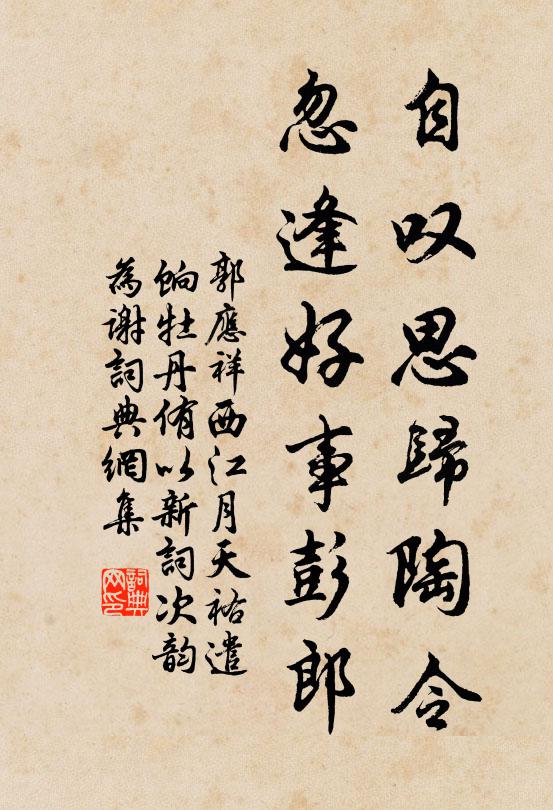 自叹思歸陶令
忽逢好事彭郎
郭應祥西江月天祐遣
餉牡丹侑以新詞次韵
為謝詞典網集
詞典
网印